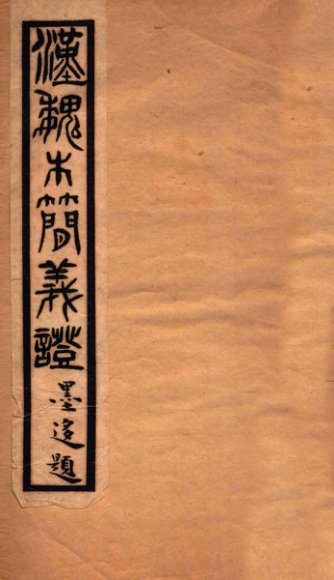 漢魏木簡義證
墨迻題